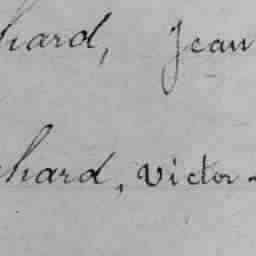 hard, Jean
chard, Victor-